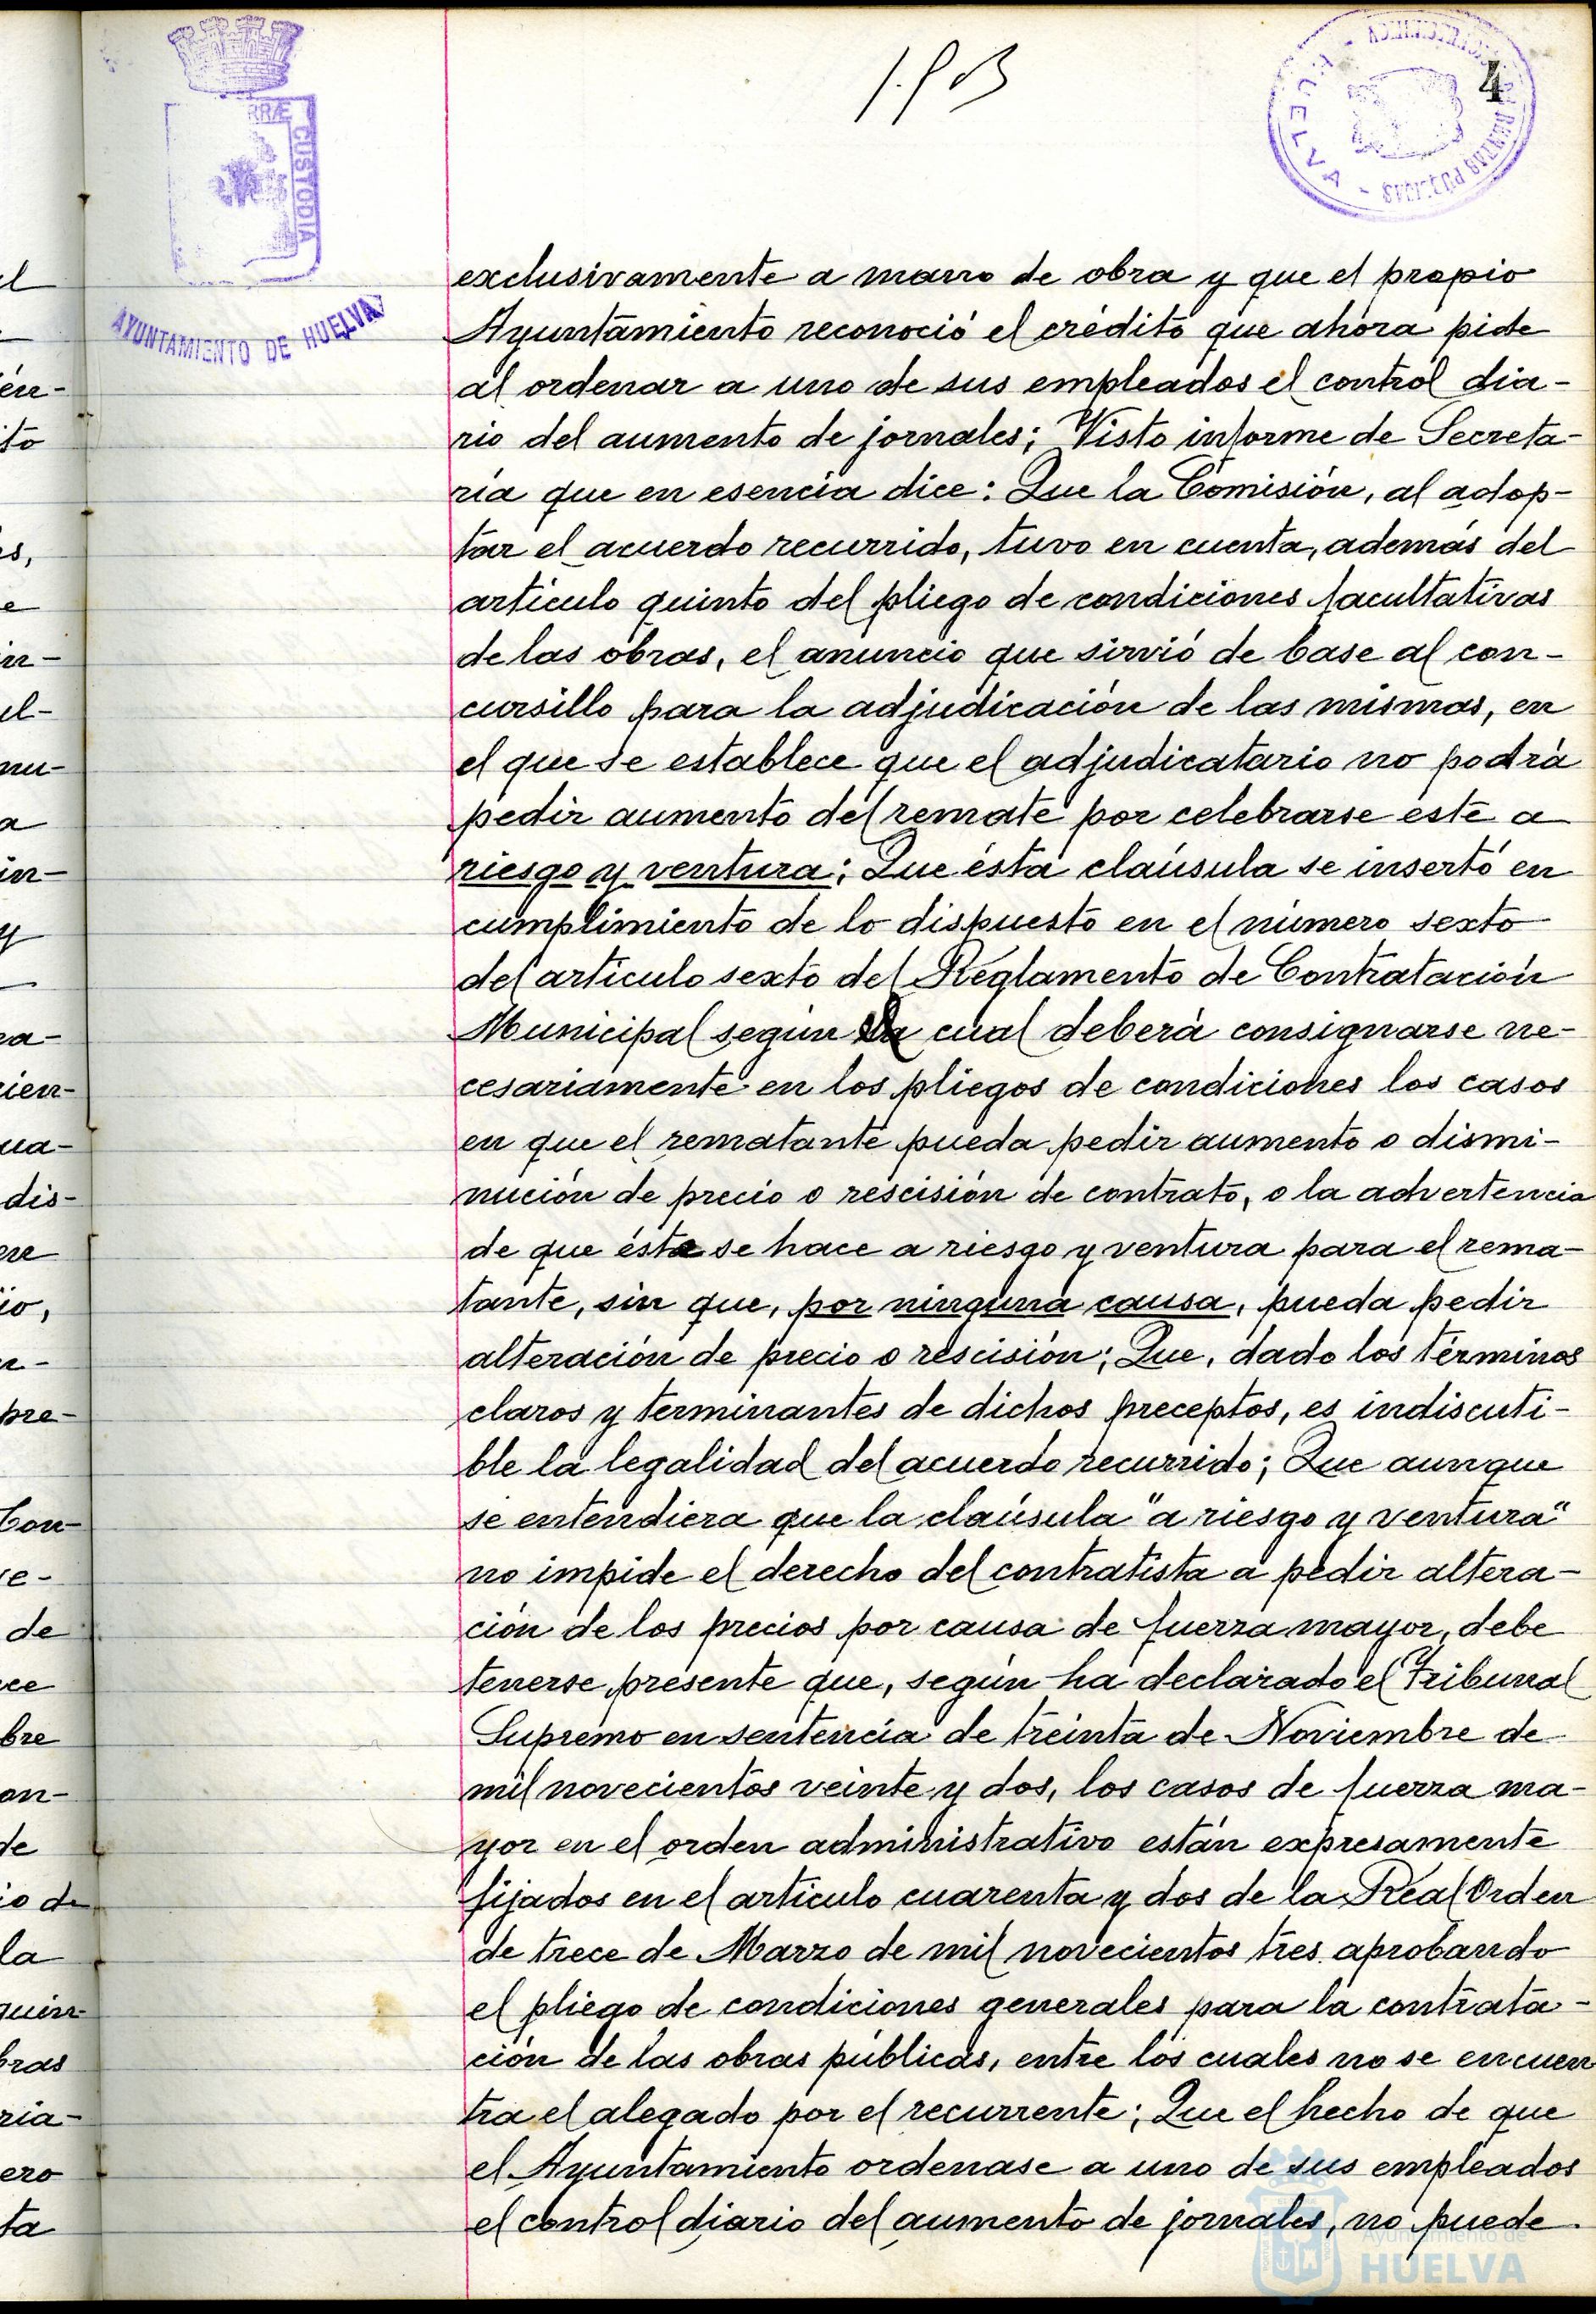 4
RRÆ
CUSTODIA
AYUNTAMIENTO DE HUELVA
HUELVA
exclusivamente a mano de obra y que el propio
Ayuntamiento reconoció el crédito que ahora pide
al ordenar a uno de sus empleados el control dia-
rio del aumento de jornales; Visto informe de Secreta-
ría que en esencia dice: Que la Comisión, al adop-
tar el acuerdo recurrido, tuvo en cuenta, además del
artículo quinto del pliego de condiciones facultativas
de las obras, el anuncio que sirvió de base al con-
cursillo para la adjudicación de las mismas, en
el que se establece que el adjudicatario no podrá
pedir aumento del remate por celebrarse éste a
riesgo y ventura; Que ésta claúsula se insertó en
cumplimiento de lo dispuesto en el número sexto
del artículo sexto del Reglamento de Contratación
Municipal según la cual deberá consignarse ne-
cesariamente en los pliegos de condiciones los casos
en que el rematante pueda pedir aumento o dismi-
nución de precio o rescisión de contrato, o la advertencia
de que éste se hace a riesgo y ventura para el rema-
tante, sin que, por ninguna causa, pueda pedir
alteración de precio o rescisión; Que, dado los términos
claros y terminantes de dichos preceptos, es indiscuti-
ble la legalidad del acuerdo recurrido; Que aunque
se entendiera que la claúsula "a riesgo y ventura"
no impide el derecho del contratista a pedir altera-
ción de los precios por causa de fuerza mayor, debe
tenerse presente que, según ha declarado el Tribunal
Supremo en sentencia de treinta de Noviembre de
mil novecientos veinte y dos, los casos de fuerza ma-
yor en el orden administrativo están expresamente
fijados en el artículo cuarenta y dos de la Real Orden
de trece de Marzo de mil novecientos tres aprobando
el pliego de condiciones generales para la contrata-
ción de las obras públicas, entre los cuales no se encuen
tra el alegado por el recurrente; Que el hecho de que
el Ayuntamiento ordenase a uno de sus empleados
el control diario del aumento de jornales, no puede
Ayuntamiento de
HUELVA